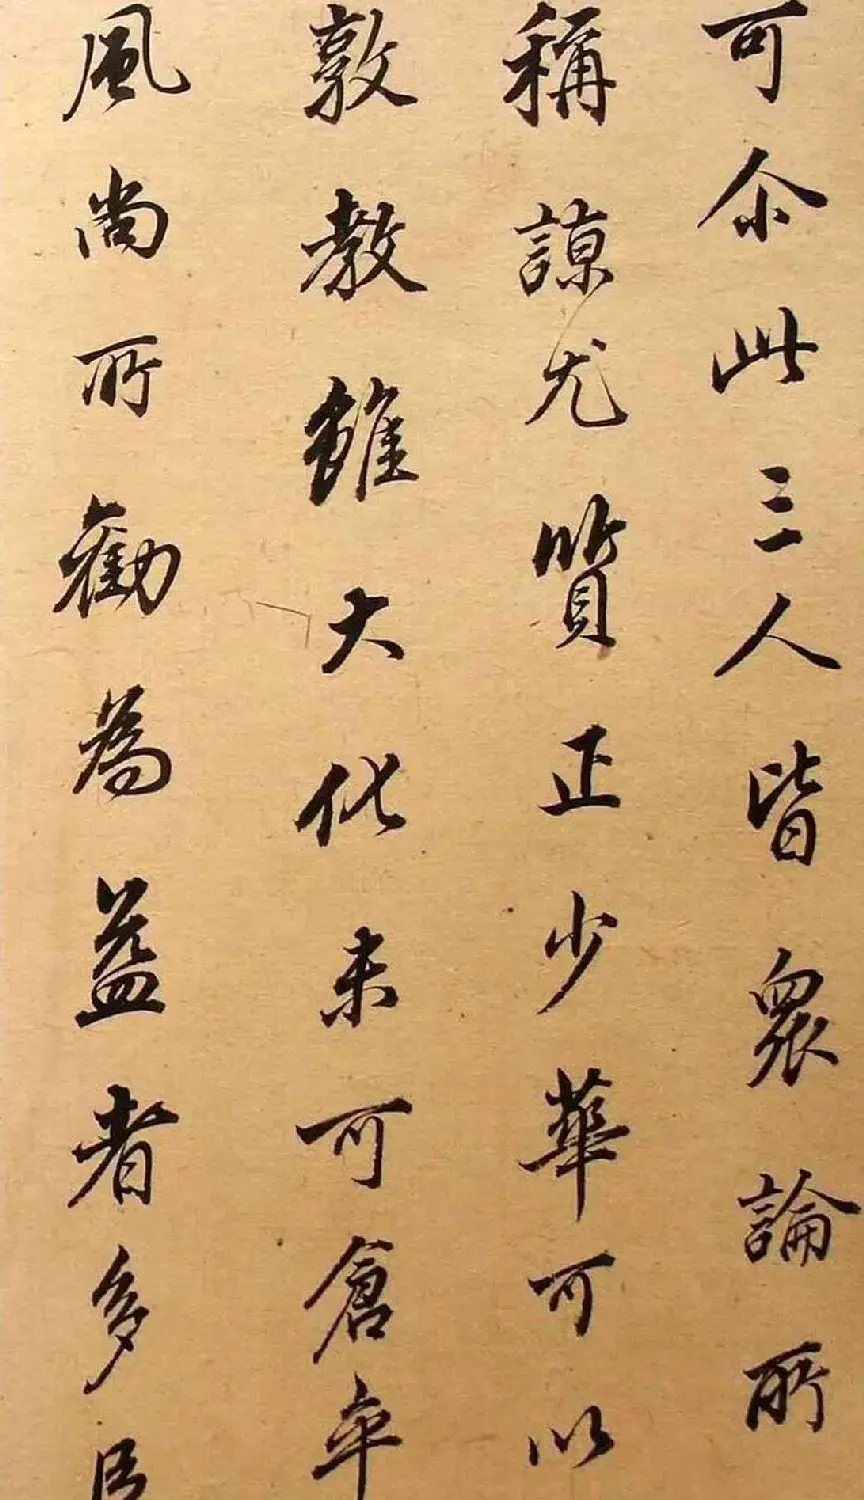 可尒此三人皆眾論所
稱諒尤質正少華可以
敦教雖大化未可倉卒
風尚所勸為益者多臣